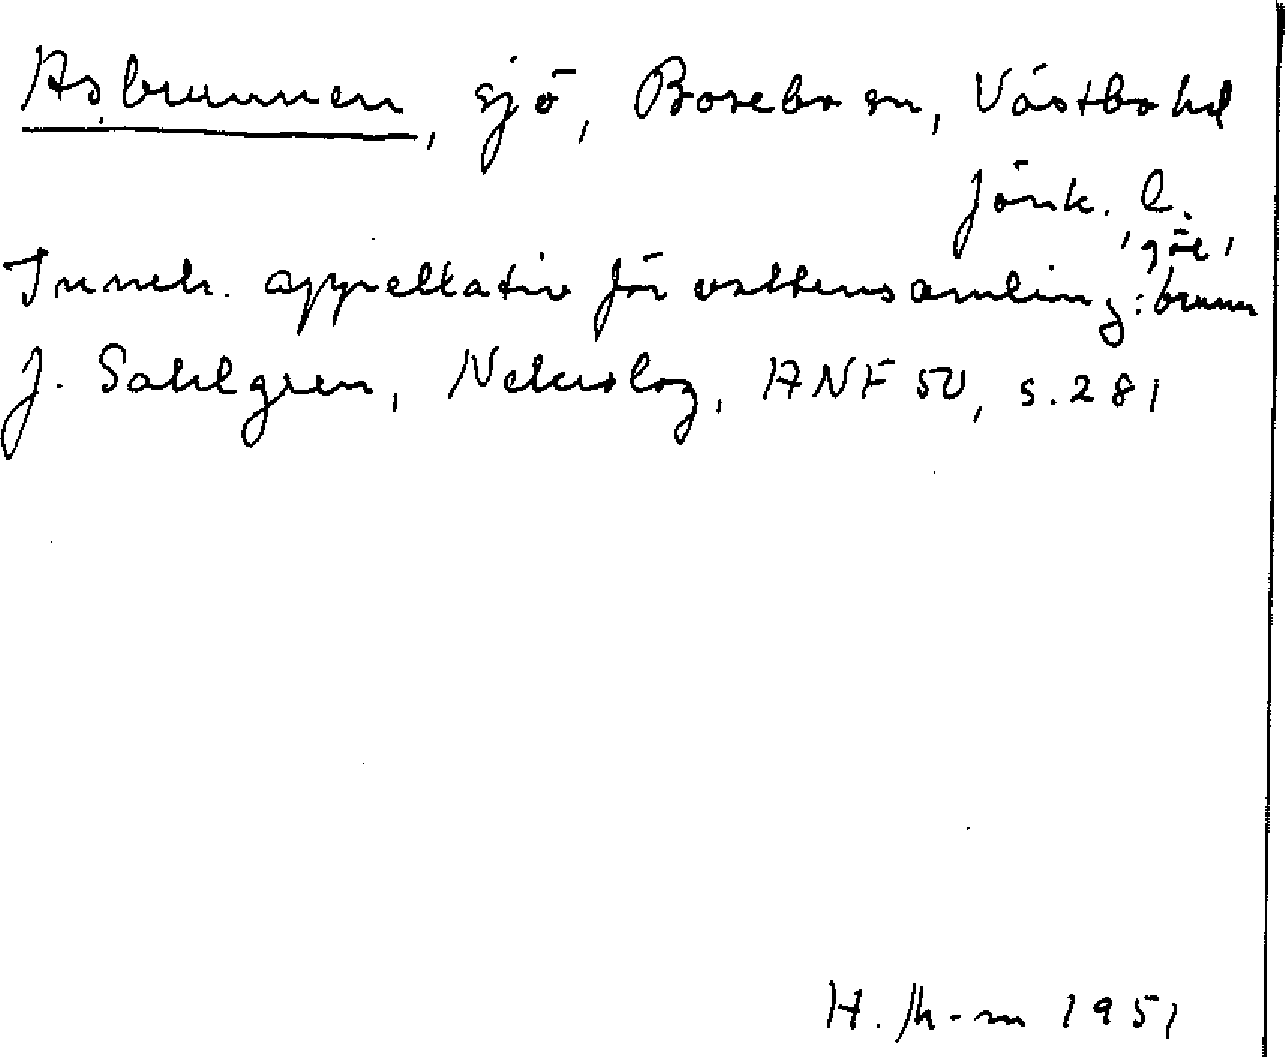 Asbrunnen, sjö, Bosebo sn, Västbo hd
Jönk. l.
Inneh. appellativ för vattensamling: brunn 'göl'
J. Sahlgren, Nekrolog, ANF 50, s. 281
H. 1951